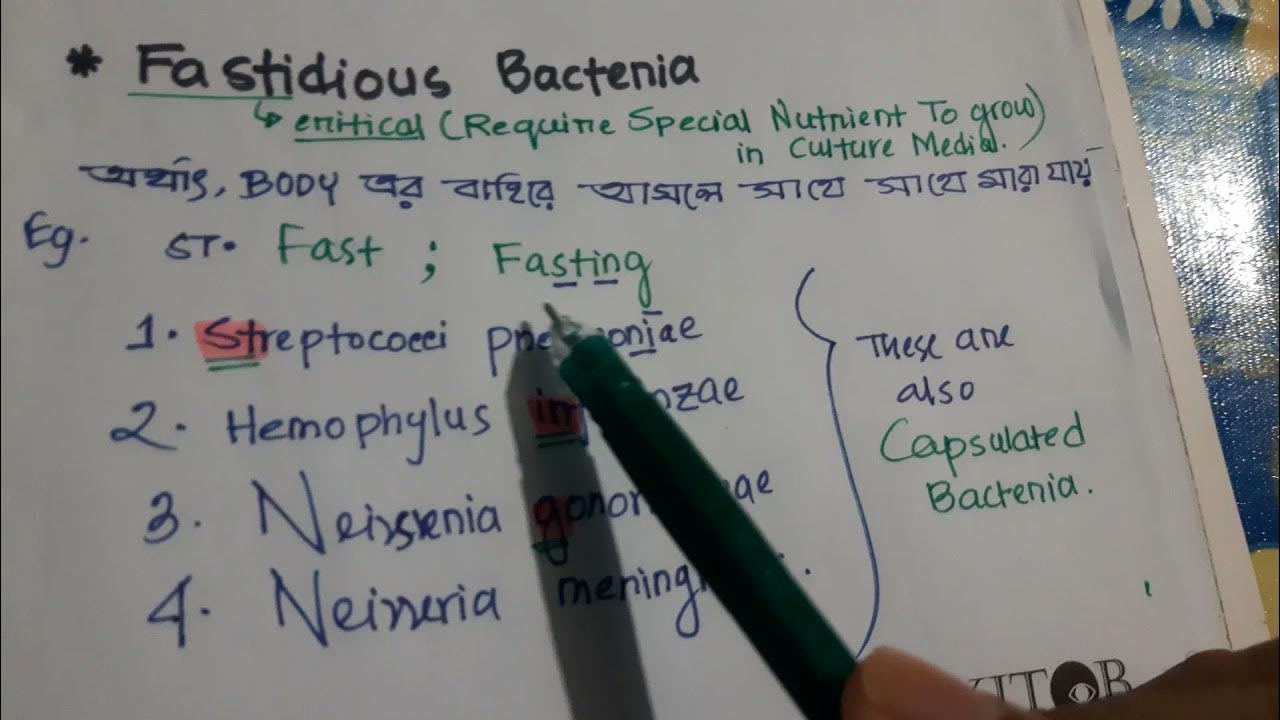 * Fastidious Bacteria
↳ critical (Require Special Nutrient To grow)
in Culture Media.
অর্থাৎ, BODY এর বাহিরে আসলে সাথে সাথে মারা যায়
Eg. ST. Fast ; Fasting
1. Streptococci
2. Hemophylus
3. Neisseria
4. Neisseria
These are
also
Capsulated
Bacteria.